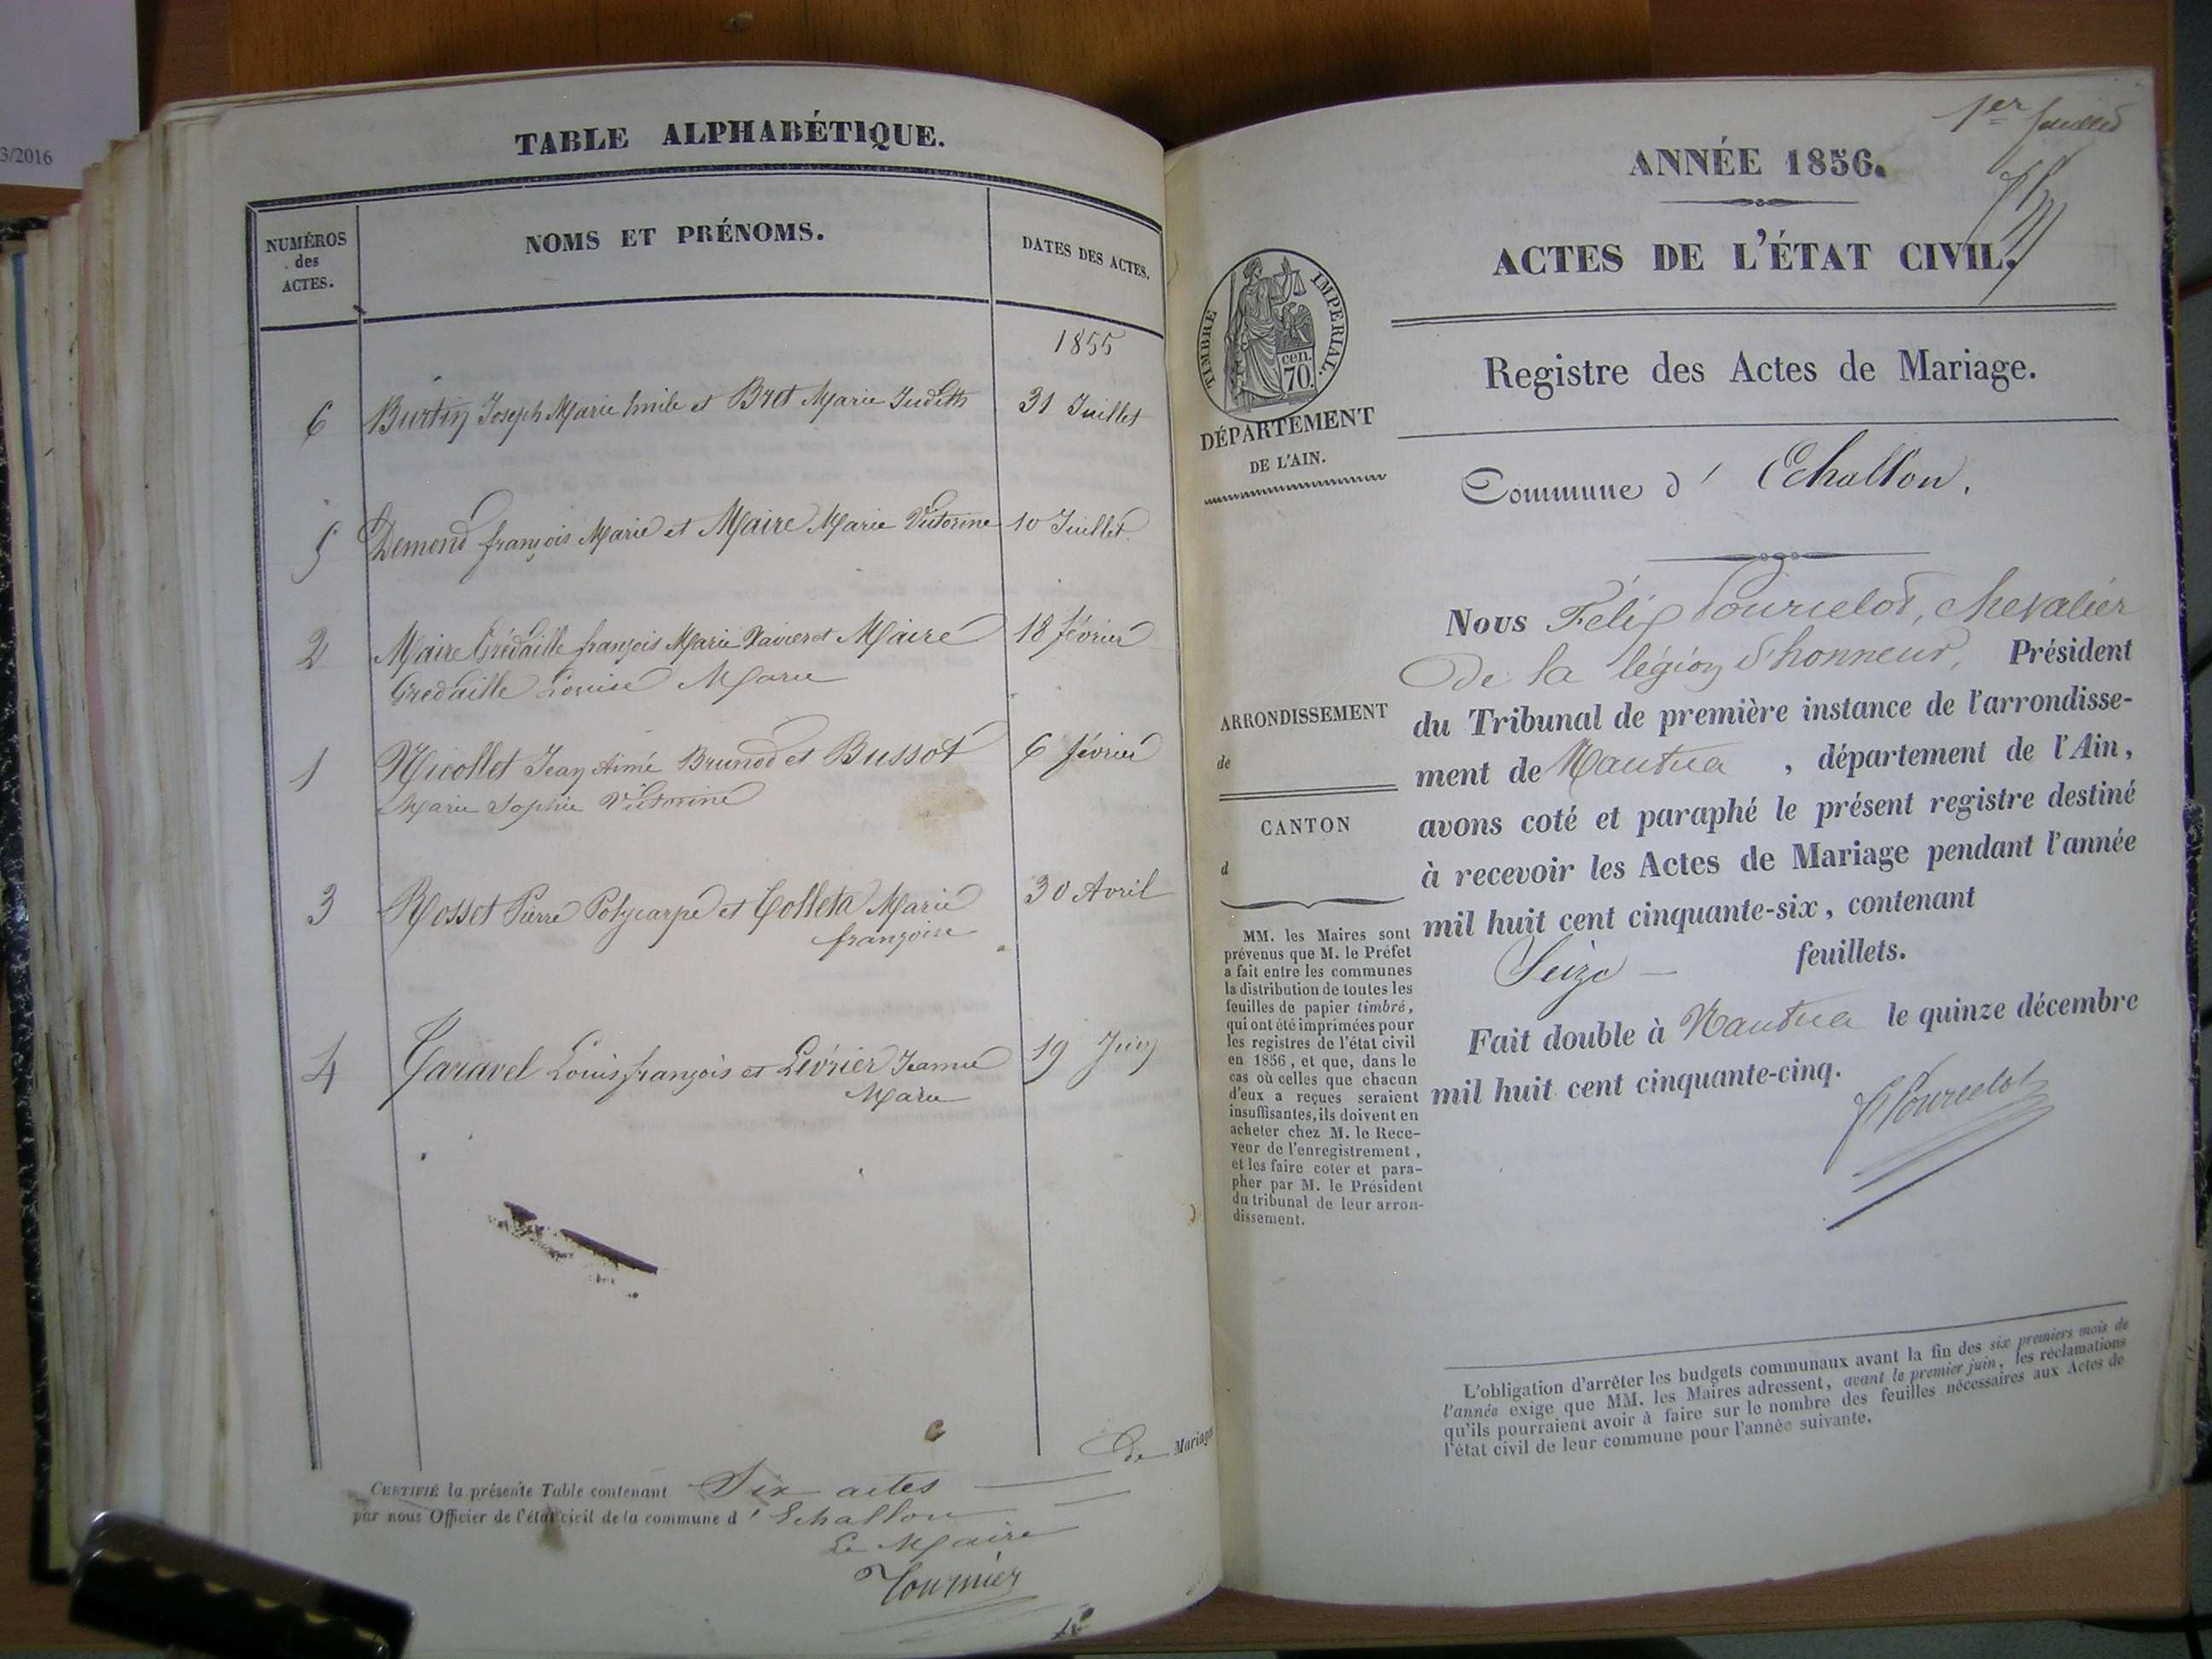 3/2016
TABLE ALPHABÉTIQUE.
NUMÉROS
des
ACTES.
NOMS ET PRÉNOMS.
DATES DES ACTES.
1855
6 Burtin Joseph Marie Emile et Bret Marie Judith 31 Juillet
5 Demond françois Marie et Maire Marie Victorine 10 Juillet
2 Maire Grédaille françois Marie Xavier et Maire 18 février
Gredaille Louise Marie
1 Nicollet Jean Aimé Brunod et Bussod 6 février
Marie Sophie Victorine
3 Rosset Pierre Polycarpe et Colleta Marie 30 Avril
françoise
4 Taravel Louis françois et Lévrier Jeanne 19 Juin
Marie
de Mariages
CERTIFIÉ la présente Table contenant Six actes
par nous Officier de l'état civil de la commune d' Echallon
Le Maire
Tournier
1er feuillet
ANNÉE 1856.
ACTES DE L'ÉTAT CIVIL.
TIMBRE IMPERIAL.
cen.
70.
DÉPARTEMENT
DE L'AIN.
Registre des Actes de Mariage.
Commune d' Echallon.
ARRONDISSEMENT
de
CANTON
d
MM. les Maires sont
prévenus que M. le Préfet
a fait entre les communes
la distribution de toutes les
feuilles de papier timbré,
qui ont été imprimées pour
les registres de l'état civil
en 1856, et que, dans le
cas où celles que chacun
d'eux a reçues seraient
insuffisantes, ils doivent en
acheter chez M. le Rece-
veur de l'enregistrement,
et les faire coter et para-
pher par M. le Président
du tribunal de leur arron-
dissement.
Nous Félix Pourcelot, chevalier
de la légion d'honneur, Président
du Tribunal de première instance de l'arrondisse-
ment de Nantua, département de l'Ain,
avons coté et paraphé le présent registre destiné
à recevoir les Actes de Mariage pendant l'année
mil huit cent cinquante-six, contenant
Seize feuillets.
Fait double à Nantua le quinze décembre
mil huit cent cinquante-cinq.
F Pourcelot
L'obligation d'arrêter les budgets communaux avant la fin des six premiers mois de
l'année exige que MM. les Maires adressent, avant le premier juin, les réclamations
qu'ils pourraient avoir à faire sur le nombre des feuilles nécessaires aux Actes de
l'état civil de leur commune pour l'année suivante.